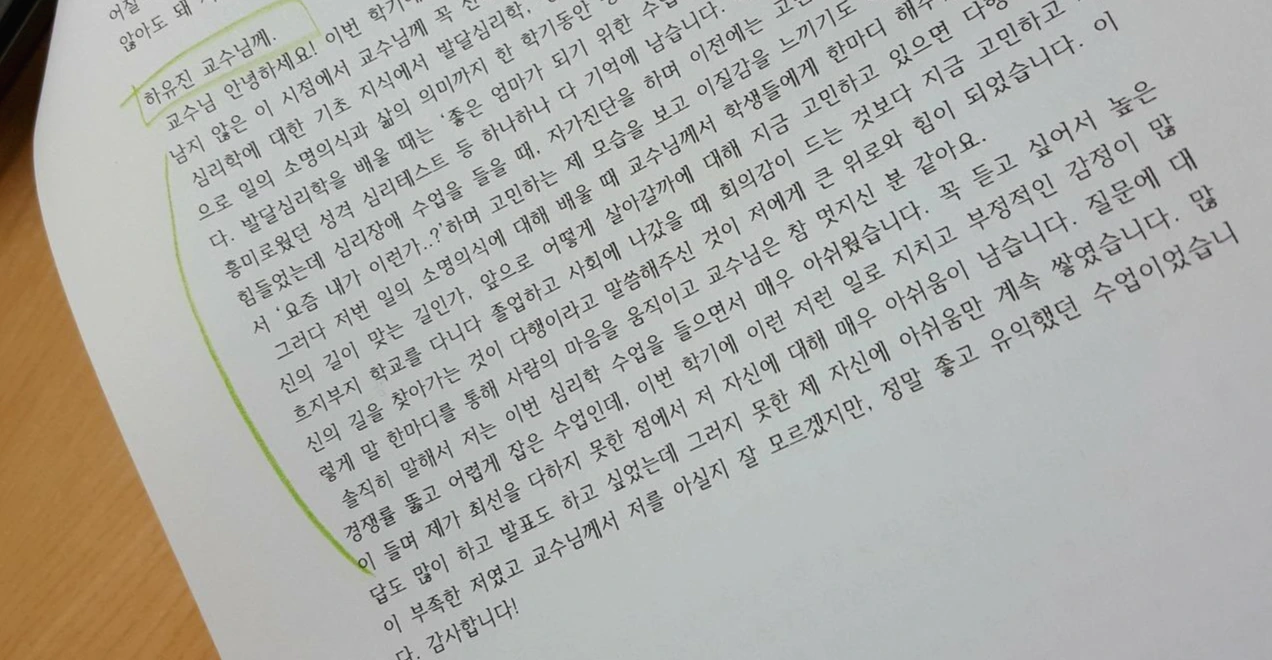 어질
않아도 돼
하유진 교수님께.
교수님 안녕하세요! 이번 학기에
남지 않은 이 시점에서 교수님께 꼭
심리학에 대한 기초 지식에서 발달심리학,
으로 일의 소명의식과 삶의 의미까지 한 학기동안
다. 발달심리학을 배울 때는 ‘좋은 엄마가 되기 위한
흥미로웠던 성격 심리테스트 등 하나하나 다 기억에 남습니다.
힘들었는데 심리장애 수업을 들을 때, 자가진단을 하며 이전에는
서 ‘요즘 내가 이런가..?’하며 고민하는 제 모습을 보고 이질감을 느끼기도
그러다 저번 일의 소명의식에 대해 배울 때 교수님께서 학생들에게 한마디
신의 길이 맞는 길인가, 앞으로 어떻게 살아갈까에 대해 지금 고민하고 있으면
흐지부지 학교를 다니다 졸업하고 사회에 나갔을 때 회의감이 드는 것보다 지금 고민하고
신의 길을 찾아가는 것이 다행이라고 말씀해주신 것이 저에게 큰 위로와 힘이 되었습니다. 이
렇게 말 한마디를 통해 사람의 마음을 움직이고 교수님은 참 멋지신 분 같아요.
솔직히 말해서 저는 이번 심리학 수업을 들으면서 매우 아쉬웠습니다. 꼭 듣고 싶어서 높은
경쟁률 뚫고 어렵게 잡은 수업인데, 이번 학기에 이런 저런 일로 지치고 부정적인 감정이 많
이 들며 제가 최선을 다하지 못한 점에서 저 자신에 대해 매우 아쉬움이 남습니다. 질문에 대
답도 많이 하고 발표도 하고 싶었는데 그러지 못한 제 자신에 아쉬움만 계속 쌓였습니다. 많
이 부족한 저였고 교수님께서 저를 아실지 잘 모르겠지만, 정말 좋고 유익했던 수업이었습니
다. 감사합니다!